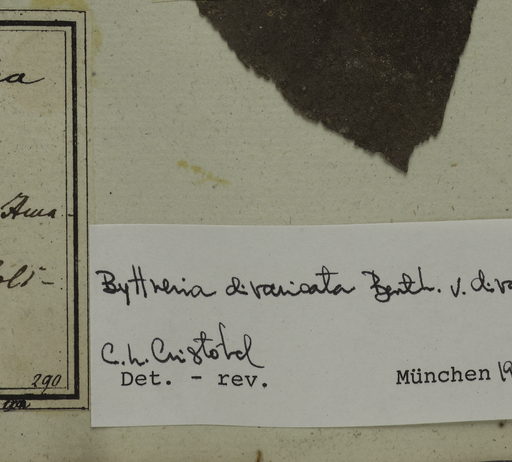 Ama-
290
Byttneria divaricata Benth. v. diva
C.L. Cristóbal
Det. - rev. München 19